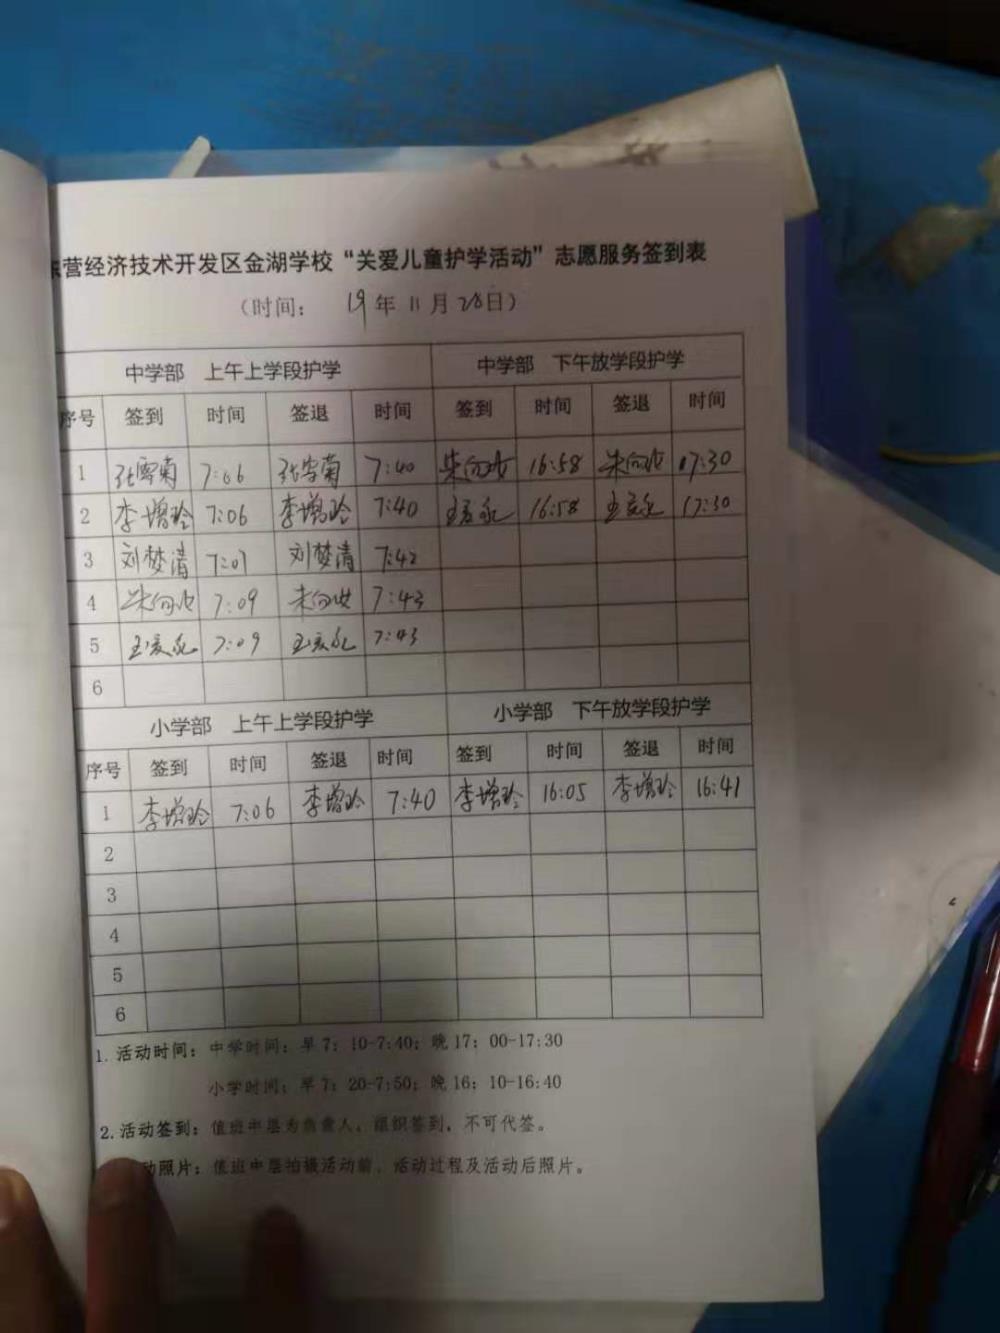 东营经济技术开发区金湖学校“关爱儿童护学活动”志愿服务签到表
（时间： 19年 11月 28日）
中学部 上午上学段护学 中学部 下午放学段护学
序号 签到 时间 签退 时间 签到 时间 签退 时间
1 7:06 7:40 16:58 17:30
2 李增玲 7:06 李增玲 7:40 16:58 17:30
3 刘梦清 7:07 刘梦清 7:42
4 7:09 7:43
5 7:09 7:43
6
小学部 上午上学段护学 小学部 下午放学段护学
序号 签到 时间 签退 时间 签到 时间 签退 时间
1 李增玲 7:06 李增玲 7:40 李增玲 16:05 李增玲 16:41
2
3
4
5
6
1. 活动时间：中学时间：早7：10-7:40；晚17：00-17:30
小学时间：早7：20-7:50；晚16：10-16:40
2. 活动签到：值班中层为负责人，组织签到，不可代签。
动照片：值班中层拍摄活动前、活动过程及活动后照片。